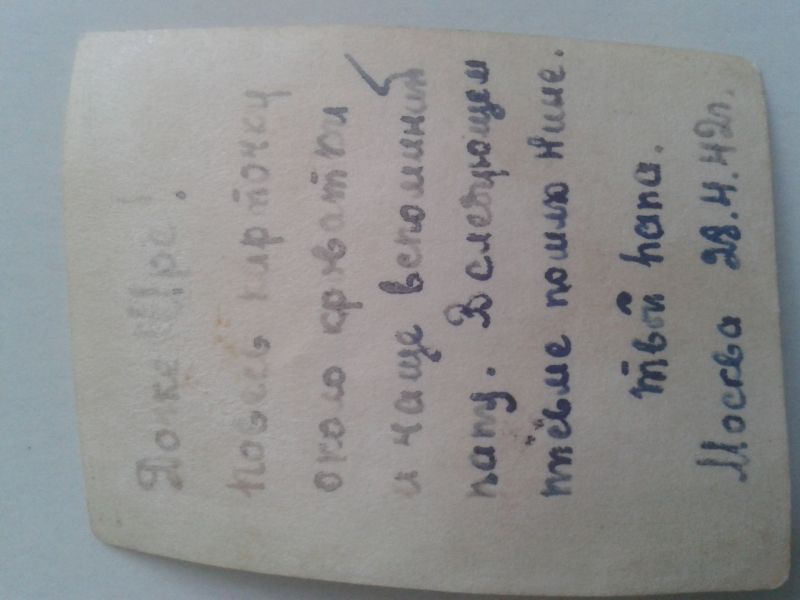 Дочке Ире!
Повесь карточку
около кроватки
и чаще вспоминай
папу. В следующем
письме пошлю Нине.
твой папа.
Москва 28.4.42г.